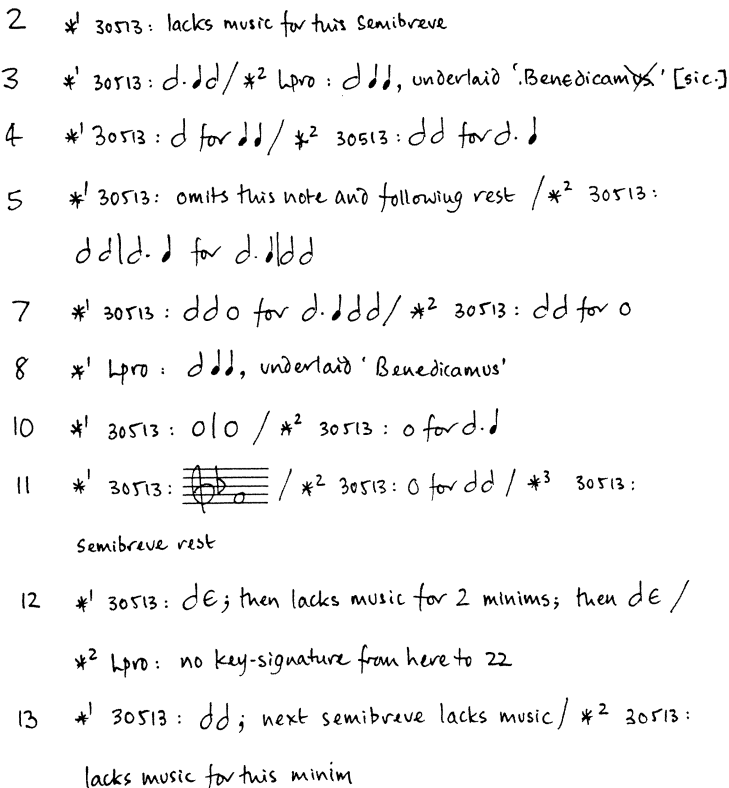 2 *¹ 30513: lacks music for this semibreve
3 *¹ 30513: 𝅗𝅥. 𝅘𝅥 𝅗𝅥 / *² Lpro: 𝅗𝅥 𝅘𝅥 𝅘𝅥, underlaid '.Benedicamus.' [sic.]
4 *¹ 30513: 𝅗𝅥 for 𝅘𝅥 𝅘𝅥 / *² 30513: 𝅗𝅥 𝅗𝅥 for 𝅗𝅥. 𝅘𝅥
5 *¹ 30513: omits this note and following rest / *² 30513:
𝅗𝅥 𝅗𝅥 | 𝅗𝅥. 𝅘𝅥 for 𝅗𝅥. 𝅘𝅥 | 𝅗𝅥 𝅗𝅥
7 *¹ 30513: 𝅗𝅥 𝅗𝅥 𝅝 for 𝅗𝅥. 𝅘𝅥 𝅗𝅥 𝅗𝅥 / *² 30513: 𝅗𝅥 𝅗𝅥 for 𝅝
8 *¹ Lpro: 𝅗𝅥 𝅘𝅥 𝅘𝅥, underlaid 'Benedicamus'
10 *¹ 30513: 𝅝 | 𝅝 / *² 30513: 𝅝 for 𝅗𝅥. 𝅘𝅥
11 *¹ 30513: / *² 30513: 𝅝 for 𝅗𝅥 𝅗𝅥 / *³ 30513:
semibreve rest
12 *¹ 30513: 𝅗𝅥 €; then lacks music for 2 minims; then 𝅗𝅥 € /
*² Lpro: no key-signature from here to 22
13 *¹ 30513: 𝅗𝅥 𝅗𝅥; next semibreve lacks music / *² 30513:
lacks music for this minim